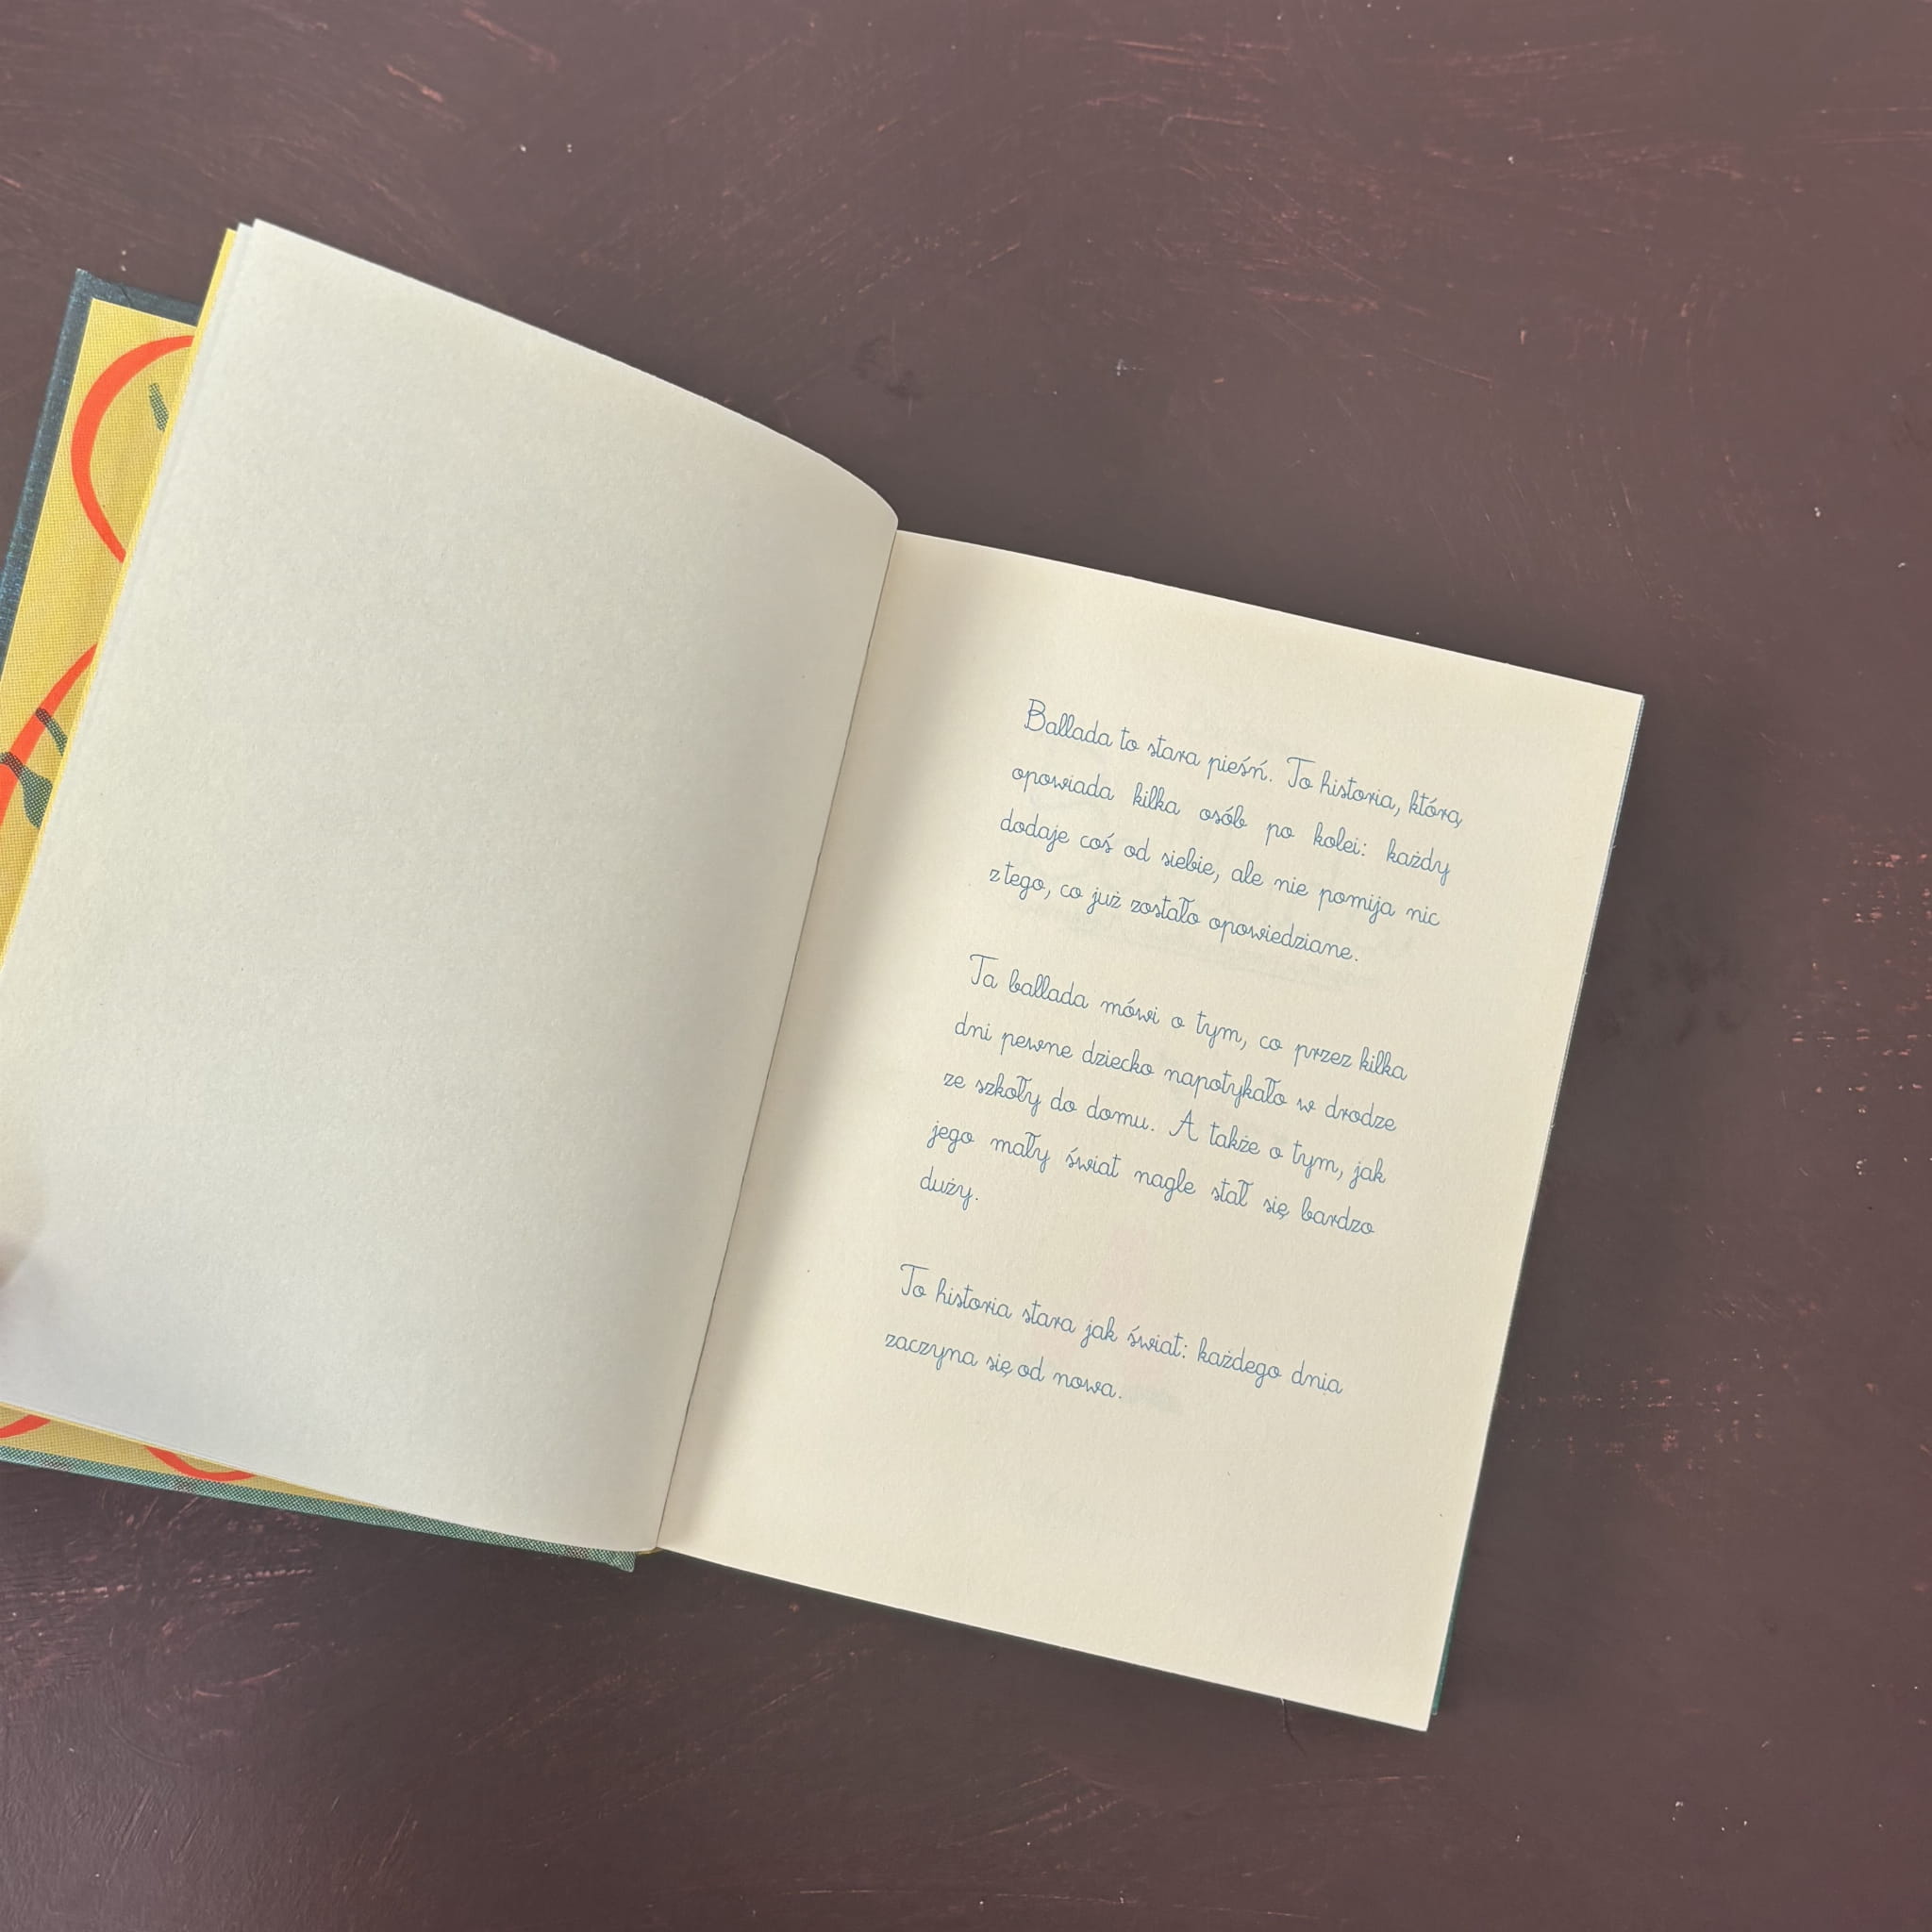 Ballada to stara pieśń. To historia, którą
opowiada kilka osób po kolei: każdy
dodaje coś od siebie, ale nie pomija nic
z tego, co już zostało opowiedziane.
Ta ballada mówi o tym, co przez kilka
dni pewne dziecko napotykało w drodze
ze szkoły do domu. A także o tym, jak
jego mały świat nagle stał się bardzo
duży.
To historia stara jak świat: każdego dnia
zaczyna się od nowa.